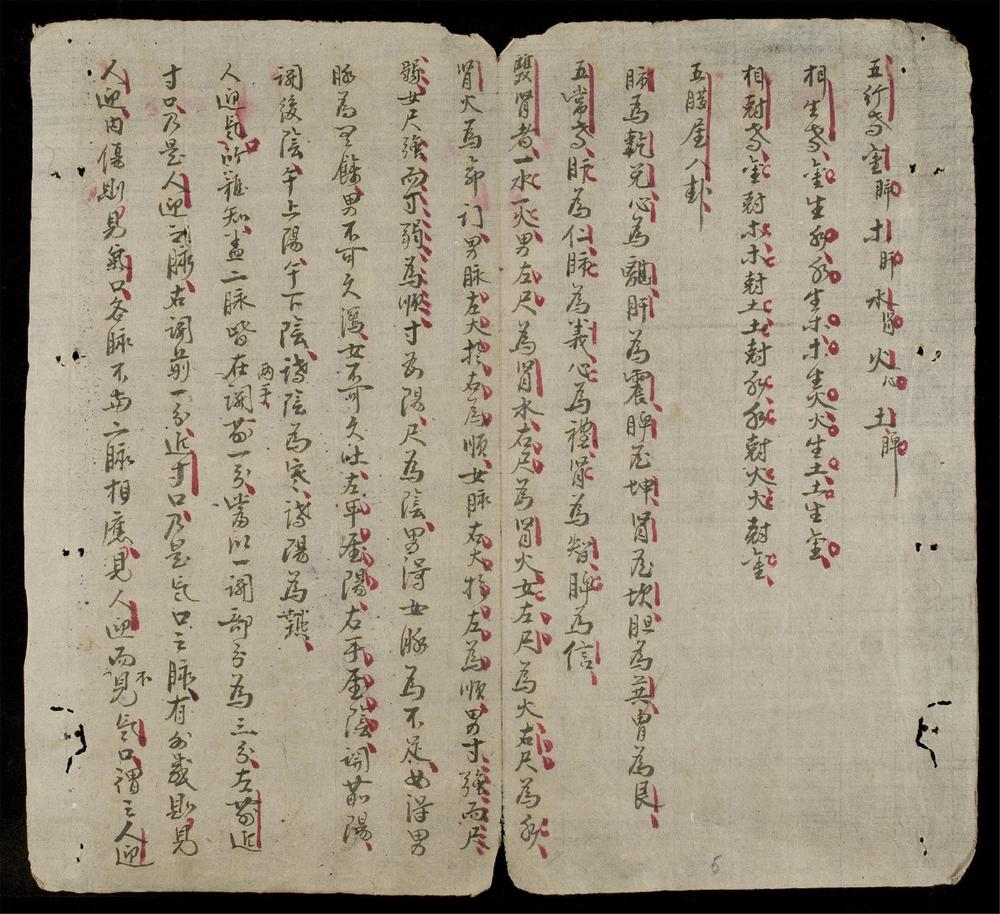 五行者金肺木肝水腎火心土脾
相生者金生水水生木木生火火生土土生金
相尅者金尅木木尅土土尅水水尅火火尅金
五臟屬八卦
肺為乾兌心為離肝為震脾為坤腎為坎胆為巽胃為艮
五常者肝為仁肺為義心為禮腎為智脾為信
雙腎者一水一火男左尺為腎水右尺為腎火女左尺為火右尺為水
腎火為命门男脉左大於右為順女脉右大於左為順男寸強而尺
弱女尺強而寸弱為順寸為陽尺為陰男得女脉為不足女得男
脉為有餘男不可久瀉女不可久吐左手屬陽右手屬陰関前陽
関後陰午上陽午下陰諸陰為寒諸陽為熱
人迎氣所難知盖二脉皆在両手関前一分當以一関部分為三分左前近
寸口乃是人迎之脉右関前一分近寸口乃是氣口之脉有外感則見
人迎内傷則見氣口各脉不与二脉相應見人迎而不見氣口謂之人迎
5